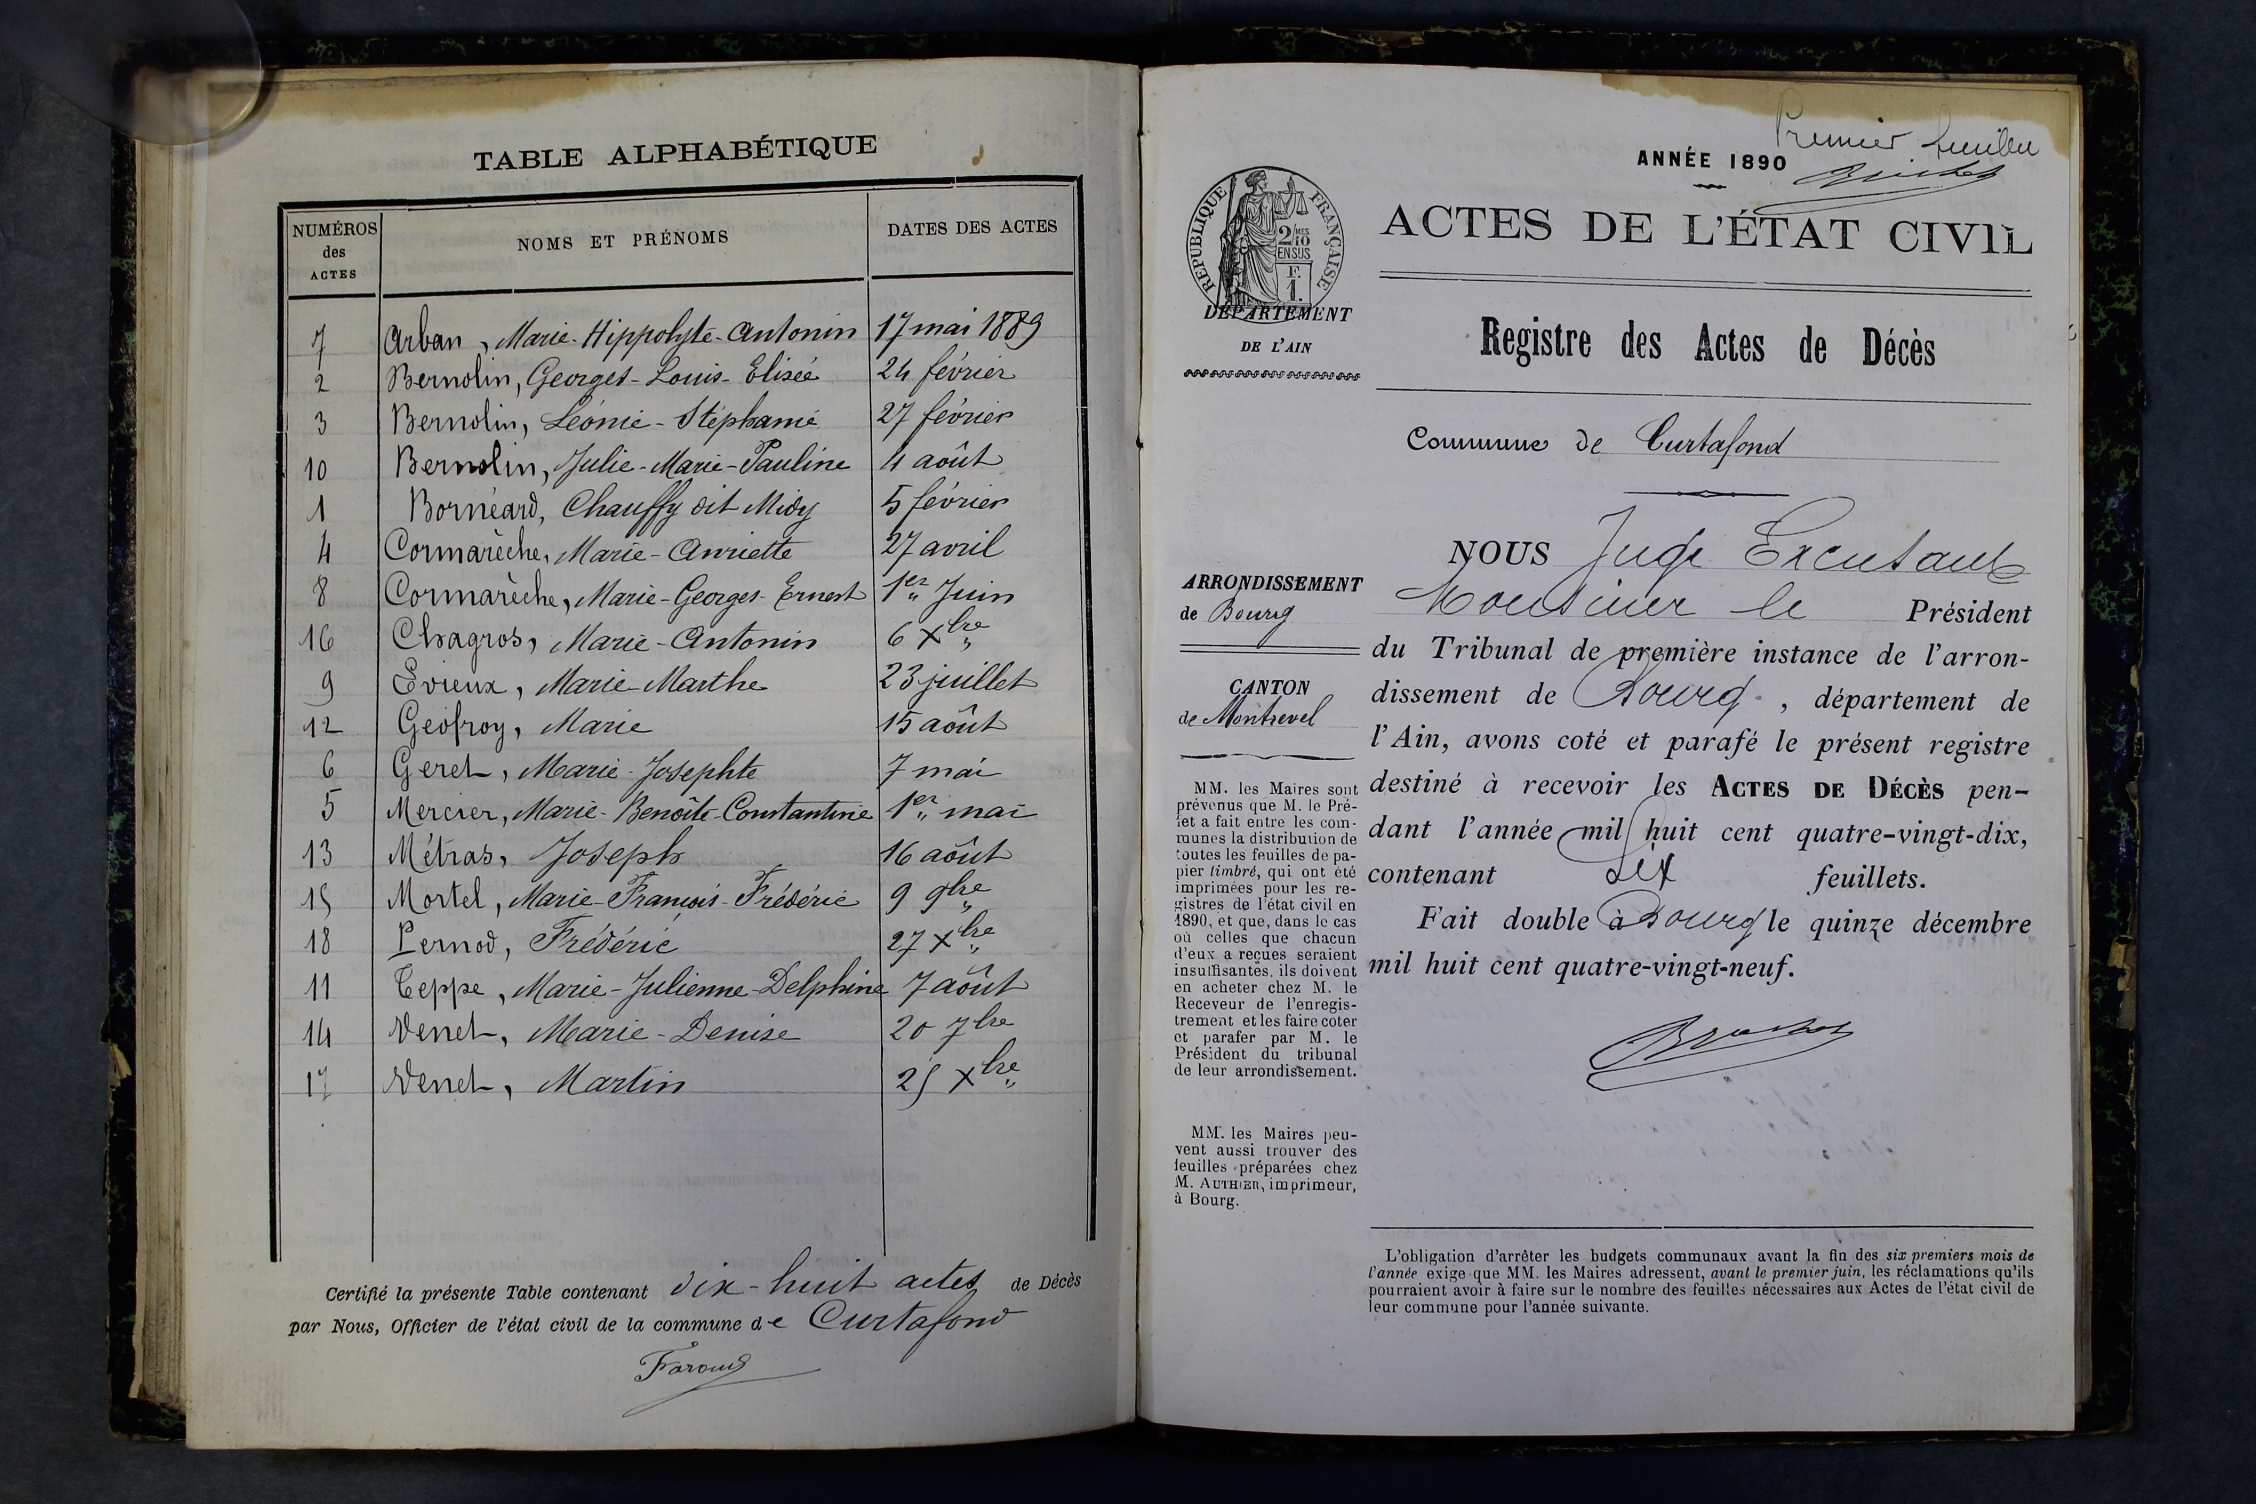 TABLE ALPHABÉTIQUE
NUMÉROS des ACTES
NOMS ET PRÉNOMS
DATES DES ACTES
7 Arban, Marie-Hippolyte-Antonin 17 mai 1889
2 Bernolin, Georges-Louis-Elisée 24 février
3 Bernolin, Léonie-Stéphanie 27 février
10 Bernolin, Julie-Marie-Pauline 4 août
1 Bornéard, Chauffy dit Midy 5 février
4 Cormarèche, Marie-Anriette 27 avril
8 Cormarèche, Marie-Georges-Ernest 1er Juin
16 Chagros, Marie-Antonin 6 Xbre
9 Evieux, Marie Marthe 23 juillet
12 Geofroy, Marie 15 août
6 Geret, Marie-Josephte 7 mai
5 Mercier, Marie-Benoîte-Constantine 1er mai
13 Métras, Joseph 16 août
15 Mortel, Marie-François-Frédéric 9 9bre
18 Pernod, Frédéric 27 Xbre
11 Teppe, Marie-Julienne-Delphine 7 août
14 Venet, Marie-Denise 20 7bre
17 Venet, Martin 25 Xbre
Certifié la présente Table contenant dix-huit actes de Décès
par Nous, Officier de l'état civil de la commune de Curtafond
Premier
ANNÉE 1890
RÉPUBLIQUE FRANÇAISE
2/10 MES
EN SUS
F.
1.
ACTES DE L'ÉTAT CIVIL
DÉPARTEMENT
DE L'AIN
Registre des Actes de Décès
Commune de Curtafond
ARRONDISSEMENT
de Bourg
CANTON
de Montrevel
MM. les Maires sont
prévenus que M. le Pré-
fet a fait entre les com-
munes la distribution de
toutes les feuilles de pa-
pier timbré, qui ont été
imprimées pour les re-
gistres de l'état civil en
1890, et que, dans le cas
où celles que chacun
d'eux a reçues seraient
insuffisantes, ils doivent
en acheter chez M. le
Receveur de l'enregis-
trement et les faire coter
et parafer par M. le
Président du tribunal
de leur arrondissement.
MM. les Maires peu-
vent aussi trouver des
feuilles préparées chez
M. AUTHIER, imprimeur,
à Bourg.
NOUS Juge Excusant
Monsieur le Président
du Tribunal de première instance de l'arron-
dissement de Bourg, département de
l'Ain, avons coté et parafé le présent registre
destiné à recevoir les ACTES DE DÉCÈS pen-
dant l'année mil huit cent quatre-vingt-dix,
contenant Six feuillets.
Fait double à Bourg le quinze décembre
mil huit cent quatre-vingt-neuf.
L'obligation d'arrêter les budgets communaux avant la fin des six premiers mois de
l'année exige que MM. les Maires adressent, avant le premier juin, les réclamations qu'ils
pourraient avoir à faire sur le nombre des feuilles nécessaires aux Actes de l'état civil de
leur commune pour l'année suivante.